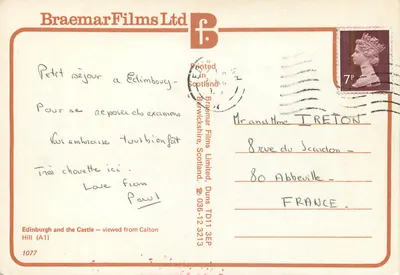 Braemar Films Ltd
f.
Printed
in
Scotland
7P
Petit séjour à Edimbourg -
Pour se reposer des examens
Vous embrasse tous bien fort
Très chouette ici.
Love from
Paul
Mr and Mme IRETON
8 rue du
80 Abbeville.
FRANCE.
Braemar Films Limited, Duns TD11 3EP
Berwickshire, Scotland. ☎ 036-12 3213
Edinburgh and the Castle – viewed from Calton
Hill (A1)
1077